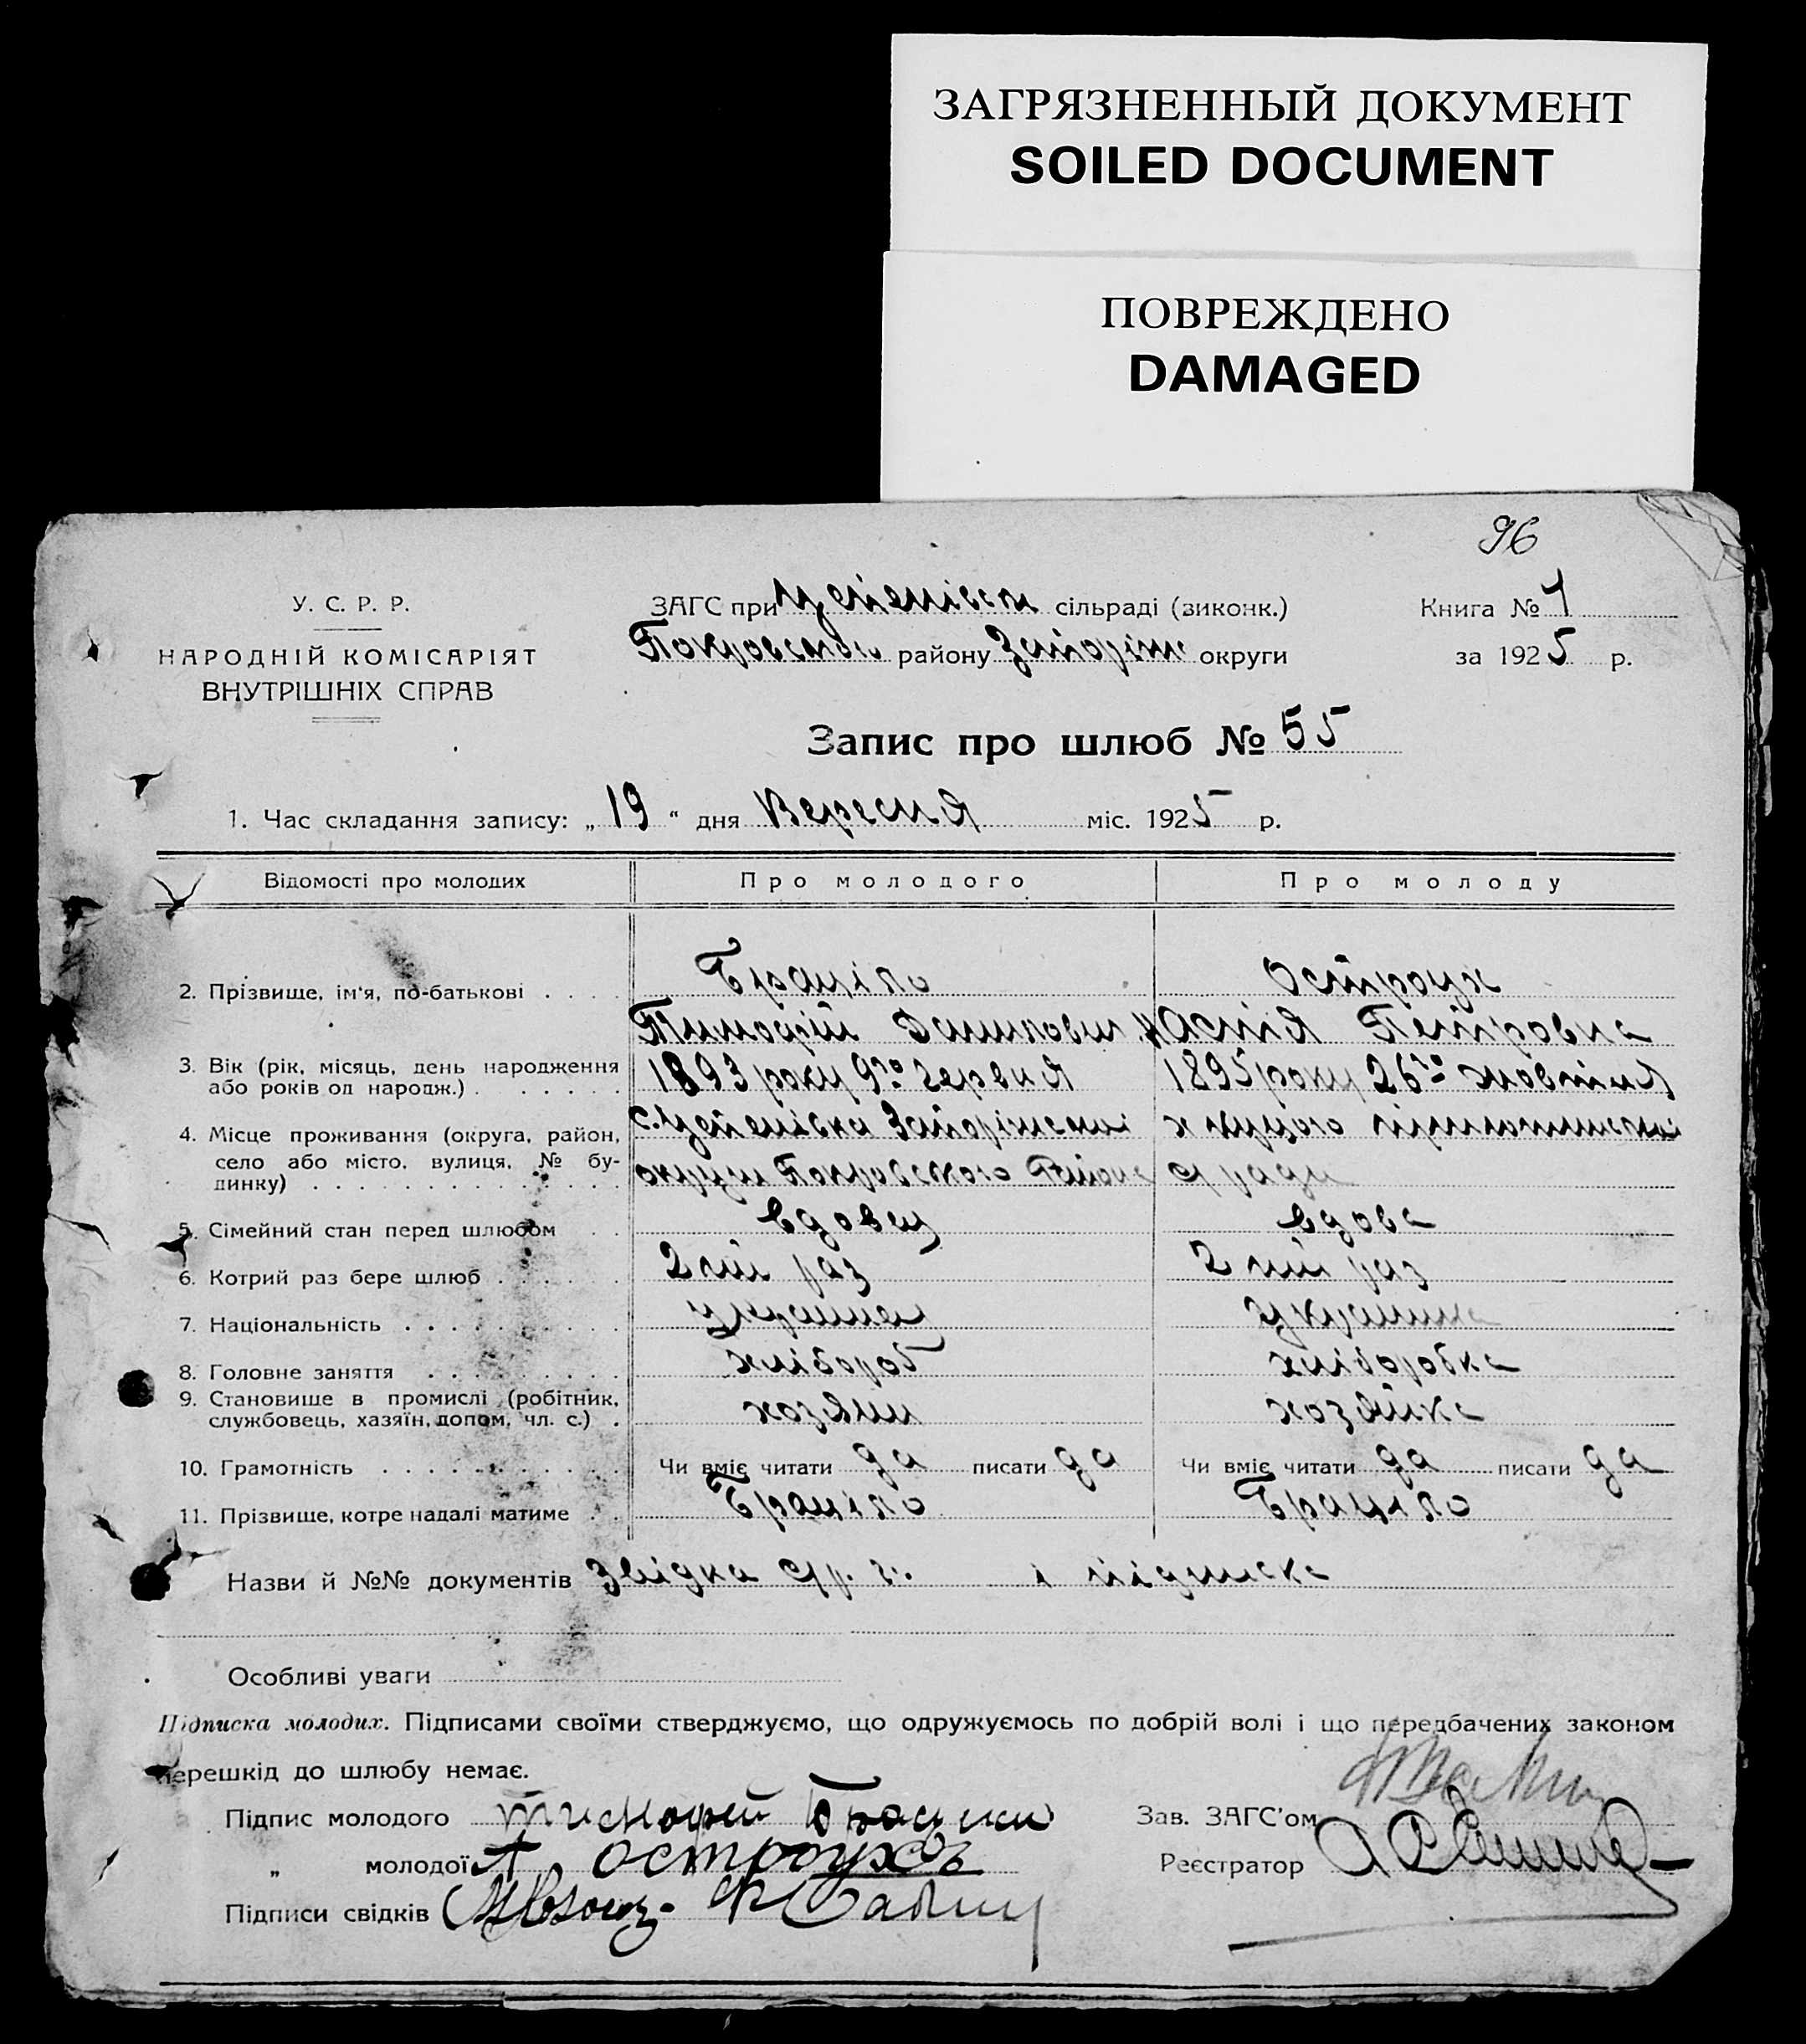 ЗАГРЯЗНЕННЫЙ ДОКУМЕНТ
SOILED DOCUMENT
ПОВРЕЖДЕНО
DAMAGED
96
У. С. Р. Р.
НАРОДНІЙ КОМІСАРІЯТ
ВНУТРІШНІХ СПРАВ
ЗАГС при сільраді (виконк.)
району Запоріж округи
Книга №
за 1925 р.
Запис про шлюб № 55
1. Час складання запису: „ 19 “ дня Вересня міс. 1925 р.
Відомості про молодих Про молодого Про молоду
2. Прізвище, ім'я, по-батькові . . . . Браціло Остроух
Тимофій Данилович Настія Петровна
3. Вік (рік, місяць, день народження
або років од народж.) . . . . . . 1893 року 9го червня 1895 року 26го жовтня
4. Місце проживання (округа, район,
село або місто, вулиця, № бу-
динку) . . . . . . . . . . . . . .
с. Запоріжської х
округи Покровського Району с/ради
5. Сімейний стан перед шлюбом . . вдовец вдова
6. Котрий раз бере шлюб . . . . . . 2 ий раз 2 ий раз
7. Національність . . . . . . . . . . украинец украинка
8. Головне заняття . . . . . . . . . хлібороб хліборобка
9. Становище в промислі (робітник,
службовець, хазяїн, допом, чл. с.) . хозяин хозяйка
10. Грамотність . . . . . . . . . . . Чи вміє читати да писати да Чи вміє читати да писати да
11. Прізвище, котре надалі матиме . . Браціло Браціло
Назви й №№ документів і підписка
Особливі уваги
Підписка молодих. Підписами своїми стверджуємо, що одружуємось по добрій волі і що передбачених законом
перешкід до шлюбу немає.
Підпис молодого Тимофей
Зав. ЗАГС'ом
„ молодої А Остроухъ
Реєстратор
Підписи свідків